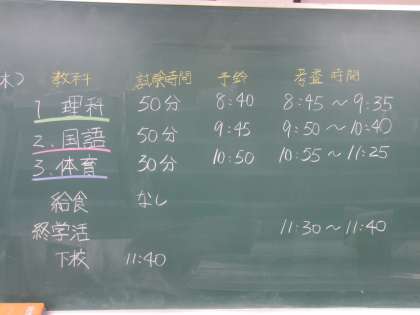 木) 教科 試験時間 予鈴 考査時間
1. 理科 50分 8:40 8:45～9:35
2. 国語 50分 9:45 9:50～10:40
3. 体育 30分 10:50 10:55～11:25
給食 なし
終学活 11:30～11:40
下校 11:40